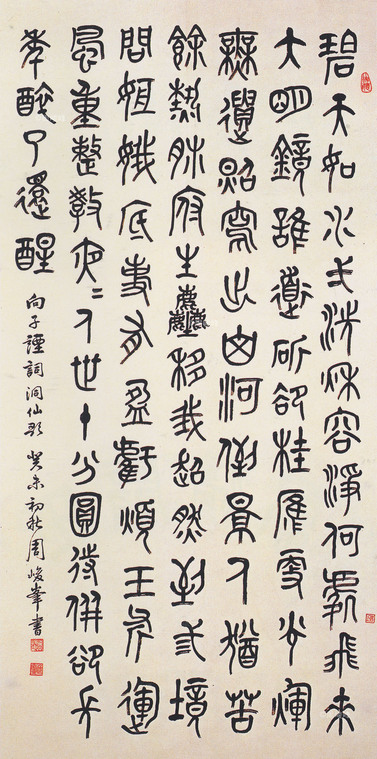 碧天如水一洗秋容淨何處飛來
大明鏡誰道斫卻桂應更光輝
無遺照寫出山河倒景人猶苦
餘熱肺府生塵移我超然到三境
問姮娥底事有盈虧煩玉斧運
風重整教夜〻人世十分圓待拚卻長
年醉了還醒
向子諲詞洞仙歌 癸未初秋周峻峯書